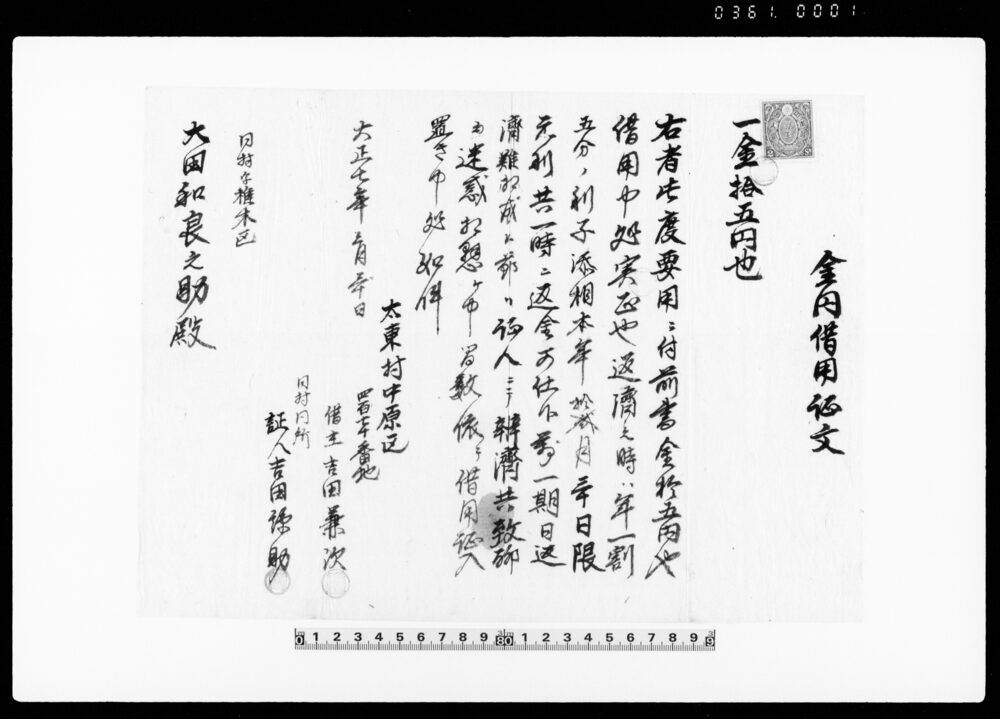 0361. 0001
金円借用証文
一金拾五円也
右者此度要用ニ付前書金拾五円也
借用申処実正也返済之時ハ年一割
五分ノ利子添相本年拾弐月三十日限
元利共一時ニ返金可仕候万一期日返
済難相成候節ハ証人ニテ弁済共致聊
迷惑相懸ケ申間敷依テ借用証入
置き申処如件
大正七年 月 日
太東村中原区
番地
借主 吉田兼次
同村同所
証人 吉田 助
同村字椎木区
大田和良之助殿
0 1 2 3 4 5 6 7 8 9 1 2 3 4 5 6 7 8 9